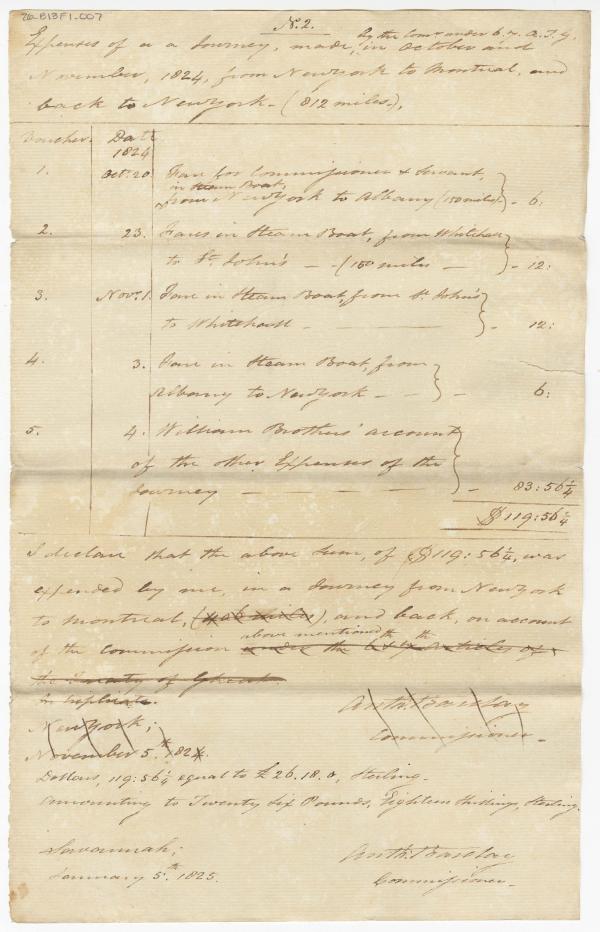 26-B13F1-007
No. 2.
by the Comn under 6. 7. A. T. G.
Expenses of a a Journey, made, in October and
November, 1824, from New York to Montreal, and
back to New York - (812 miles.),
Voucher. Date
1824
1. Octr. 20 Fare for Commissioner & Servant,
in Steam Boat,
from New York to Albany (150 miles) - 6:
2. 23. Fares in Steam Boat, from Whitehall
to St. John's - - (150 miles - - 12:
3. Novr. 1. Fare in Steam Boat, from St. John's
to Whitehall - - - - 12:
4. 3. Fare in Steam Boat, from
Albany to New York - - - - 6:
5. 4. William Brothers' account
of the other Expenses of the
Journey - - - - - 83:56¼
$ 119:56¼
I declare that the above Sum, of $119:56¼, was
expended by me, in a Journey from New York
to Montreal, (406 miles), and back, on account
above mentioned
of the Commission under the 6th & 7th Articles of
the Treaty of Ghent.
In Duplicate.
New York; Anth. Barclay
November 5th 1824. Commissioner.
Dollars, 119:56¼ equal to £26.18.0, Sterling.
Amounting to Twenty Six Pounds, Eighteen Shillings, Sterling.
Savannah; Anth. Barclay
January 5th. 1825. Commissioner.